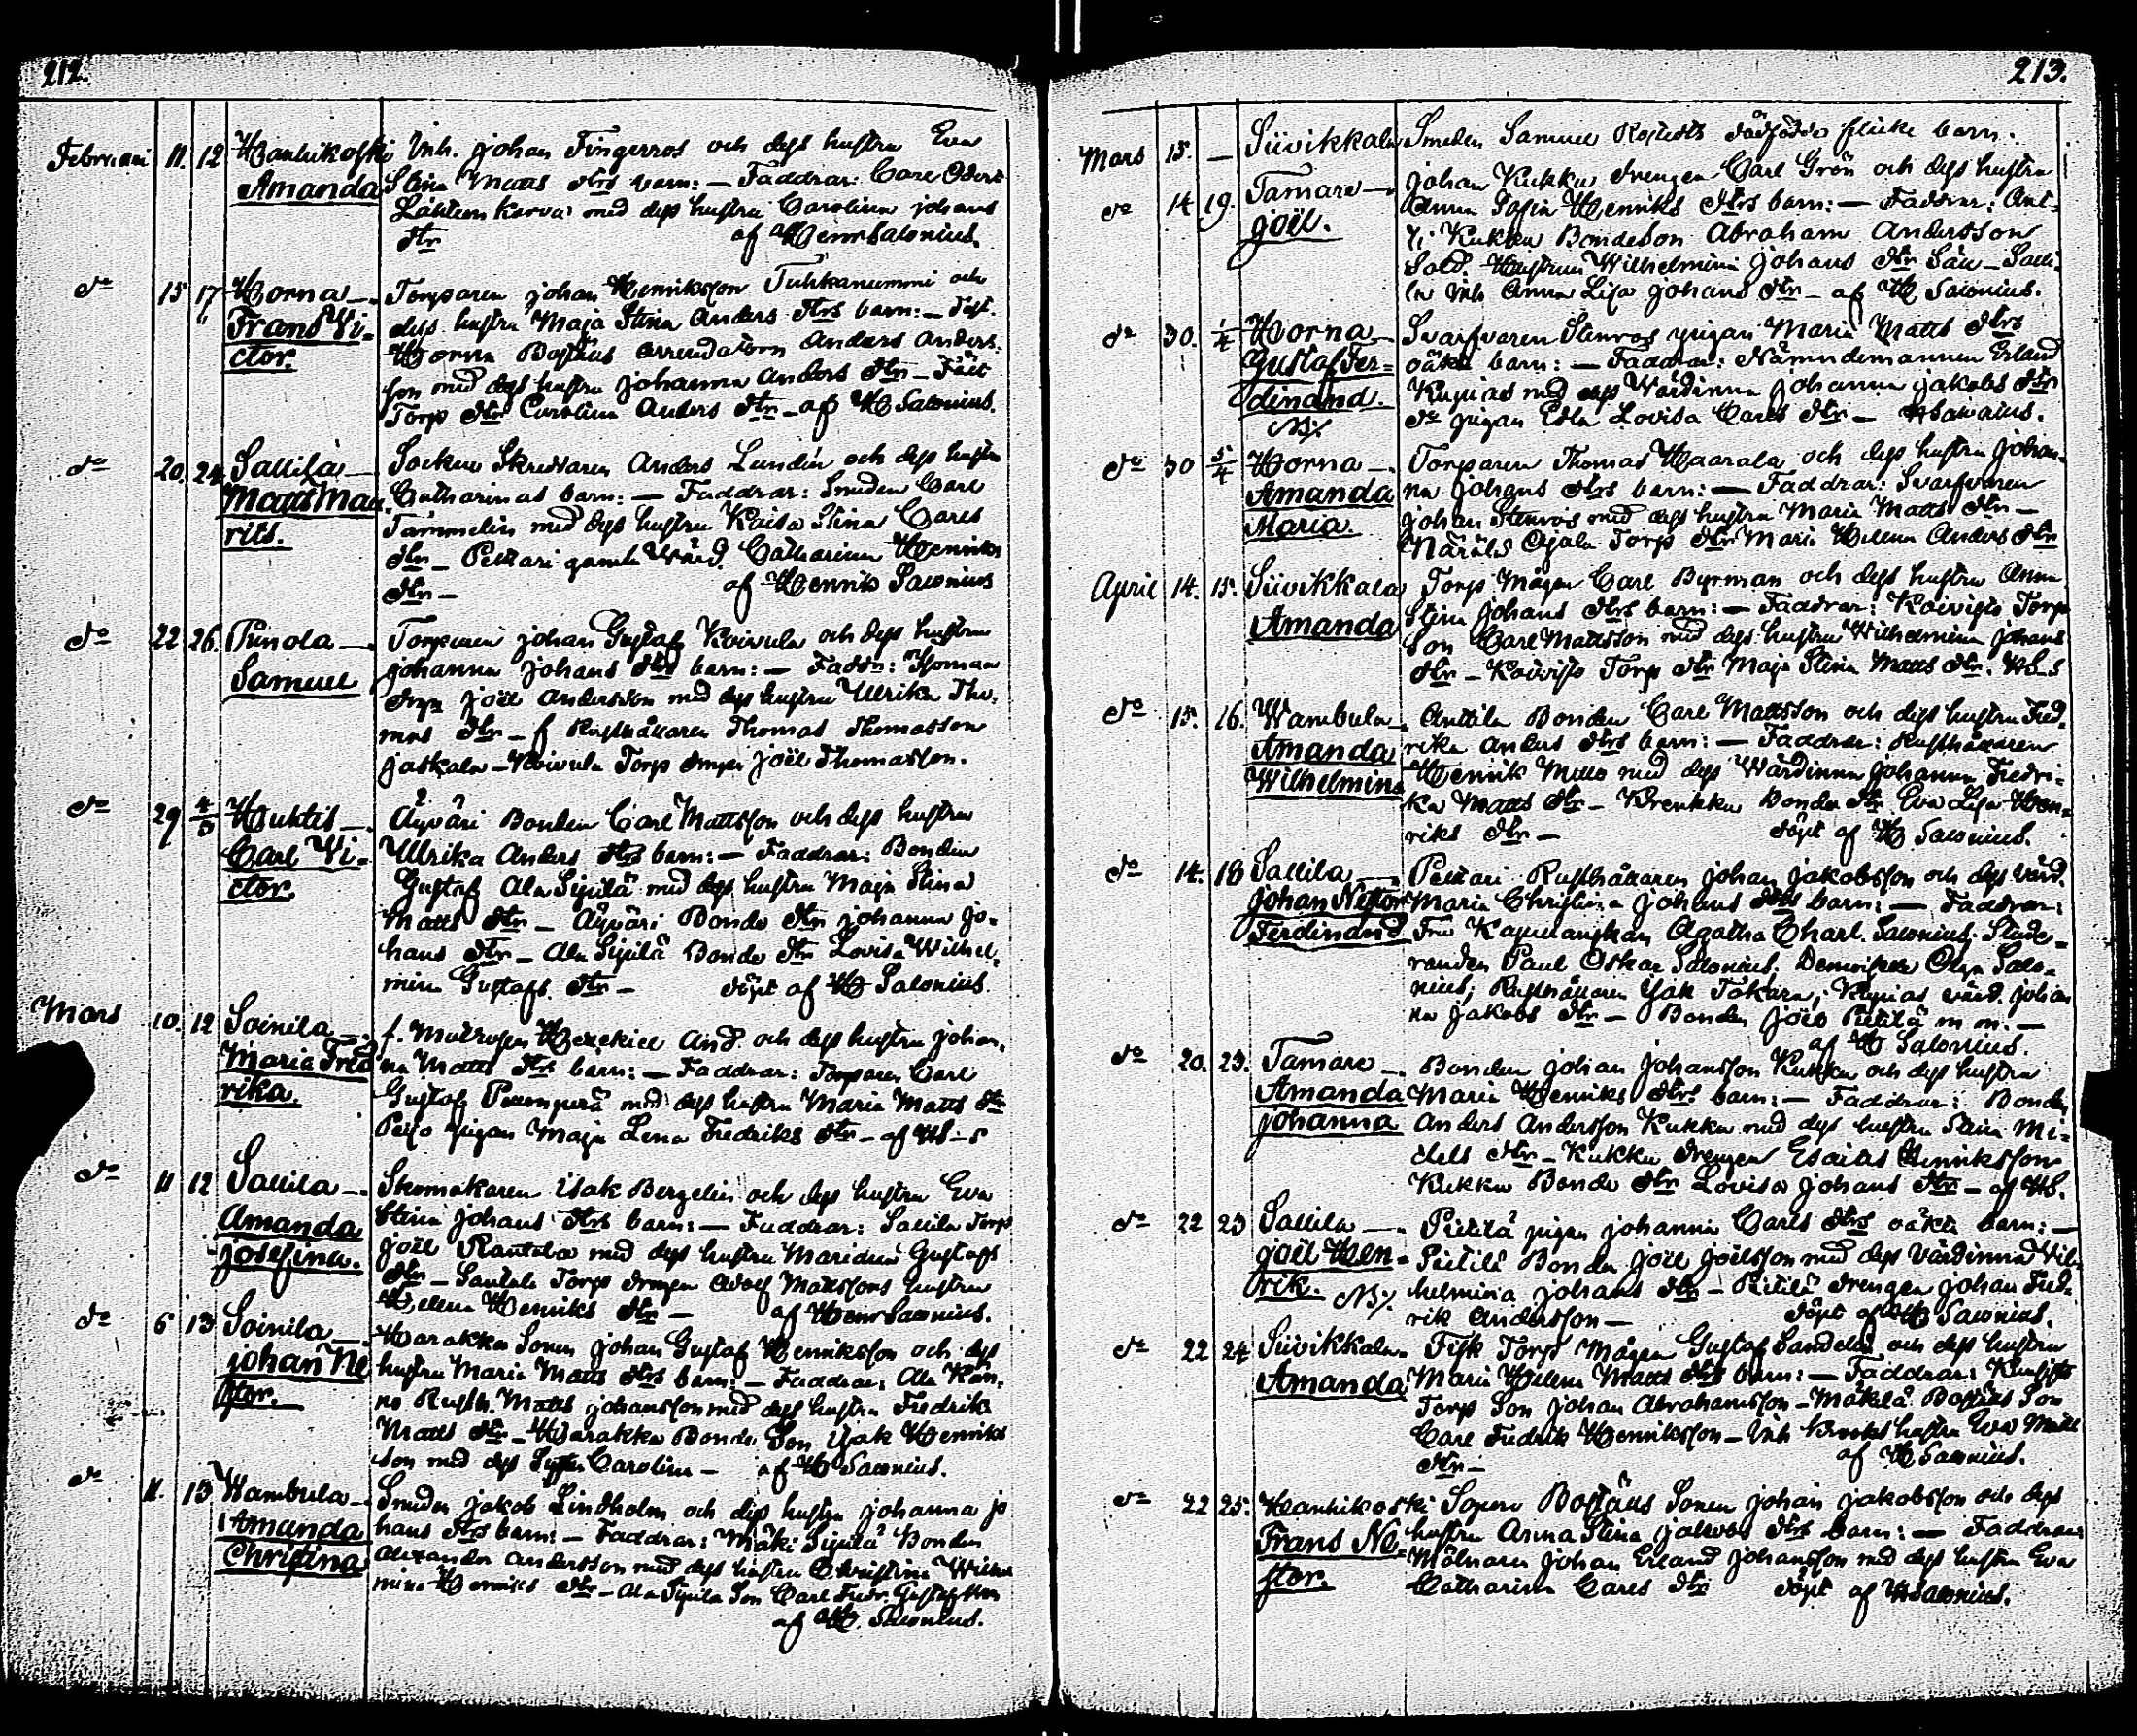 212.
Februari 11. 12 Hanhikoski Inh. Johan Fingerroos och dess hustru Eva
Amanda Stina Matts dtrs barn: — Faddrar: Carl
med dess hustru Carolina Johans
dtr af Henr Salonius.
do 15 17 Horna —. Torparen Johan Henriksson Tuhkanummi och
Frans Vi- dess hustru Maja Stina Anders dtrs barn: —
ctor. Horna Boställs arrendatorn Anders Anders-
son med dess hustru Johanna Anders dtr —
Torp dtr Carolina Anders dtr — af H Salonius.
do 20. 24 Sallila — Socken Skräddaren Anders Lundén och dess hustru
Matts Mau- Catharinas barn: — Faddrar: Smeden Carl
rits. Tammelin med dess hustru Kaisa Stina Carls
dtr — Pettari gamla Värd. Catharina Henriks
dtr — af Henrik Salonius
do 22 26. Punola —. Torparen Johan Gustaf Koivula och dess hustru
Samuel Johanna Johans dtrs barn: — Faddr:
Joël Andersson med dess hustru Ulrika Tho-
mas dtr — f Rusthållaren Thomas Thomasson
Jaskala — Koivula Torp dräng Joël Thomasson.
do 29 4/3 Huhtis —. Äyväri Bonden Carl Mattsson och dess hustru
Carl Vi- Ulrika Anders dtrs barn: — Faddrar: Bonden
ctor. Gustaf Ala Sipilä med dess hustru Maja Stina
Matts dtr — Äyväri Bonde dtr Johanna Jo-
hans dtr — Ala Sipilä Bonde dtr Lovisa Wilhel-
mina Gustafs dtr — döpt af H Salonius.
Mars 10. 12 Soinila —. f. Matrosen Hezekiel And och dess hustru Johan-
Maria Fred na Matts dtrs barn: — Faddrar: Torparen Carl
rika. Gustaf med dess hustru Maria Matts dtr
pigan Maja Lena Fredriks dtr — af HS
do 11 12 Sallila —. Skomakaren Isak Bergelin och dess hustru Eva
Amanda Stina Johans dtrs barn: — Faddrar: Sallila Torp
Josefina. Joël Rantala med dess hustru Gustafs
dtr — Torp drengen Adolf Mattssons hustru
Helena Henriks dtr — af Henr Salonius.
do 6 13 Soinila —. Harakka Sonen Johan Gustaf Henriksson och dess
Johan Ne hustru Maria Matts dtrs barn: — Faddrar: Ala
stor. Rusth. Matts Johansson med dess hustru Fredrik
Matts dtr — Harakka Bonde Son Isak Henriks
son med dess Syster Carolina — af H Salonius.
do 11. 13 Wambula —. Smeden Jakob Lindholm och dess hustru Johanna Jo
Amanda hans dtrs barn: — Faddrar: Mäki Sipilä Bonden
Christina Alexander Andersson med dess hustru Christina Wilhel
mina Henriks dtr — Ala Sipilä Son Carl Fredr. Gustafsson
af H. Salonius.
213.
Mars 15. — Siivikkala Smeden Samuel dödfödda flicke barn.
do 14 19. Tamare —. Johan Kukku drengen Carl Grön och dess hustru
Joël. Anna Sofia Henriks dtrs barn: — Faddrar:
Kukku Bondeson Abraham Andersson
Sold. Hustrun Wilhelmina Johans dtr
Inh Anna Lisa Johans dtr — af H Salonius.
do 30. 1/4 Horna — Svarfvaren Stenros pigan Maria Matts dtrs
Gustaf Fer- oäkta barn: — Faddrar: Nämndemannen Erland
dinand. Kupias med dess Värdinna Johanna Jakobs dtr
N3/. do pigan Edla Lovisa Carls dtr — H Salonius.
do 30 5/4 Horna —. Torparen Thomas Haarala och dess hustru Johan-
Amanda na Johans dtrs barn: — Faddrar: Svarfvaren
Maria. Johan Stenros med dess hustru Maria Matts dtr —
Ojala Torp dtr Maria Helena Anders dtr
April 14. 15. Siivikkala Torp Mågen Carl Byrman och dess hustru Anna
Amanda Stina Johans dtrs barn: — Faddrar: Koivisto Torp
Son Carl Mattsson med dess hustru Wilhelmina Johans
dtr — Koivisto Torp dtr Maja Stina Matts dtr. HS
do 15. 16. Wambula —. Anttila Bonden Carl Mattsson och dess hustru Fred-
Amanda rika Anders dtrs barn: — Faddrar: Rusthållaren
Wilhelmina Henrik med dess Värdinna Johanna Fredri-
ka Matts dtr — Krenkku Bonde dtr Eva Lisa Hen-
riks dtr — döpt af H Salonius.
do 14. 18 Sallila —. Pettari Rusthållaren Johan Jakobsson och dess värd.
Johan Nestor Maria Christina Johans dtrs barn: — Faddrar:
Ferdinand Fru Kapellanskan Agatha Charl. Salonius; Stude-
randen Paul Oskar Salonius; Olga Salo-
nius; Rusthållaren Isak Tokara; Kupias värd. Johan
na Jakobs dtr — Bonden Joël Pietilä m m. —
af H Salonius.
do 20. 23. Tamare —. Bonden Johan Johansson Kukku och dess hustru
Amanda Maria Henriks dtrs barn: — Faddrar: Bonden
Johanna Anders Andersson Kukku med dess hustru Stina Mi-
chels dtr — Kukku drengen Esaias Henriksson
Kukku Bonde dtr Lovisa Johans dtr — af HS.
do 22 23 Sallila —. Pietilä pigan Johanna Carls dtrs oäkta barn: —
Joël Hen- Pietilä Bonden Joël Joëlsson med dess värdinna Wil-
rik. N3/. helmina Johans dtr — Pietilä drengen Johan Fred-
rik Andersson — döpt af H Salonius.
do 22 24 Siivikkala. Fisk Torp Mågen Gustaf Sandelin och dess hustru
Amanda Maria Helena Matts dtrs barn: — Faddrar:
Torp Son Johan Abrahamsson — Mäkelä Boställs Son
Carl Fredrik Henriksson — Inh hustru Eva Matts
dtr — af H Salonius.
do 22 25. Hanhikoski Soperi Boställs Sonen Johan Jakobsson och dess
Frans Ne- hustru Anna Stina Jakobs dtrs barn: — Faddrar
stor. Mölnaren Johan Erland Johansson med dess hustru Eva
Catharina Carls dtr döpt af H Salonius.